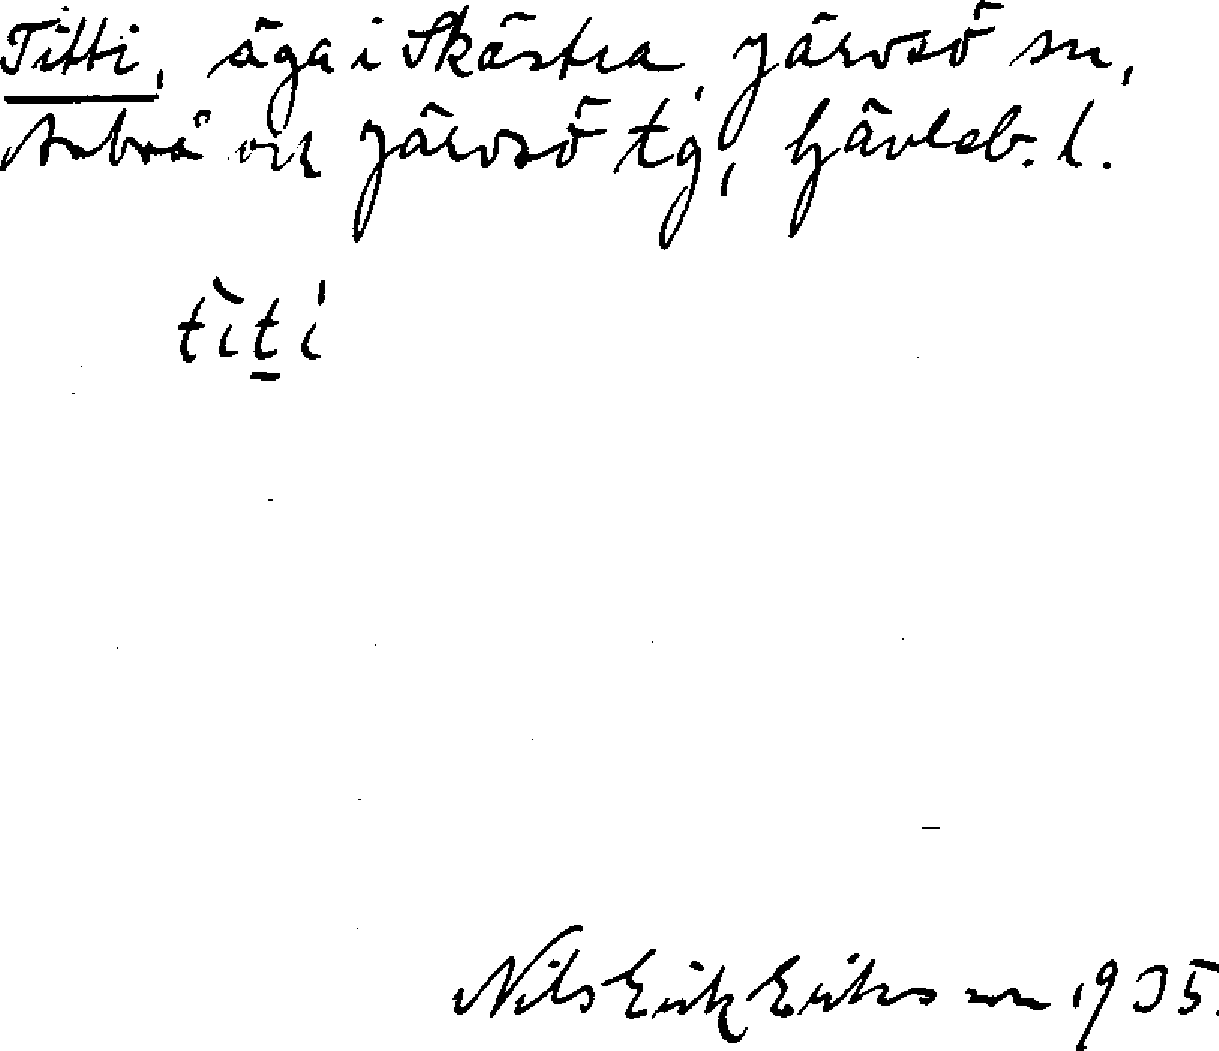 Titti, äga i Skästra, Järvsö sn,
Arbrå och Järvsö tg, Gävleb. l.
tìt̠i
Nils Erik Eriksson 1935.